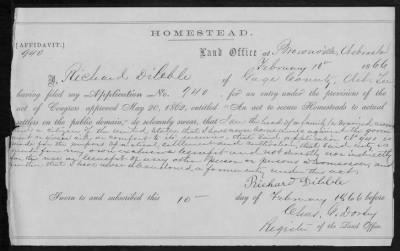 HOMESTEAD.
[AFFIDAVIT.]
940
Land Office at Brownville, Nebraska
February 10th 1866
I, Richard Dibble of Gage County, Neb. Ter
having filed my Application No. 940, for an entry under the provisions of the
act of Congress approved May 20, 1862, entitled "An act to secure Homesteads to actual
settlers on the public domain," do solemnly swear, that I am the head of a family
and a citizen of the United States; that I have
that said application is
made for the purpose of actual settlement and cultivation; that said entry is
made for my own exclusive benefit and not directly nor indirectly
for the use or benefit of any other person or persons whomsoever, and
that I have never
under this act.
Richard Dibble
Sworn to and subscribed this 10th day of February 1866 before
Chas. G. Dorsey
Register of the Land Office